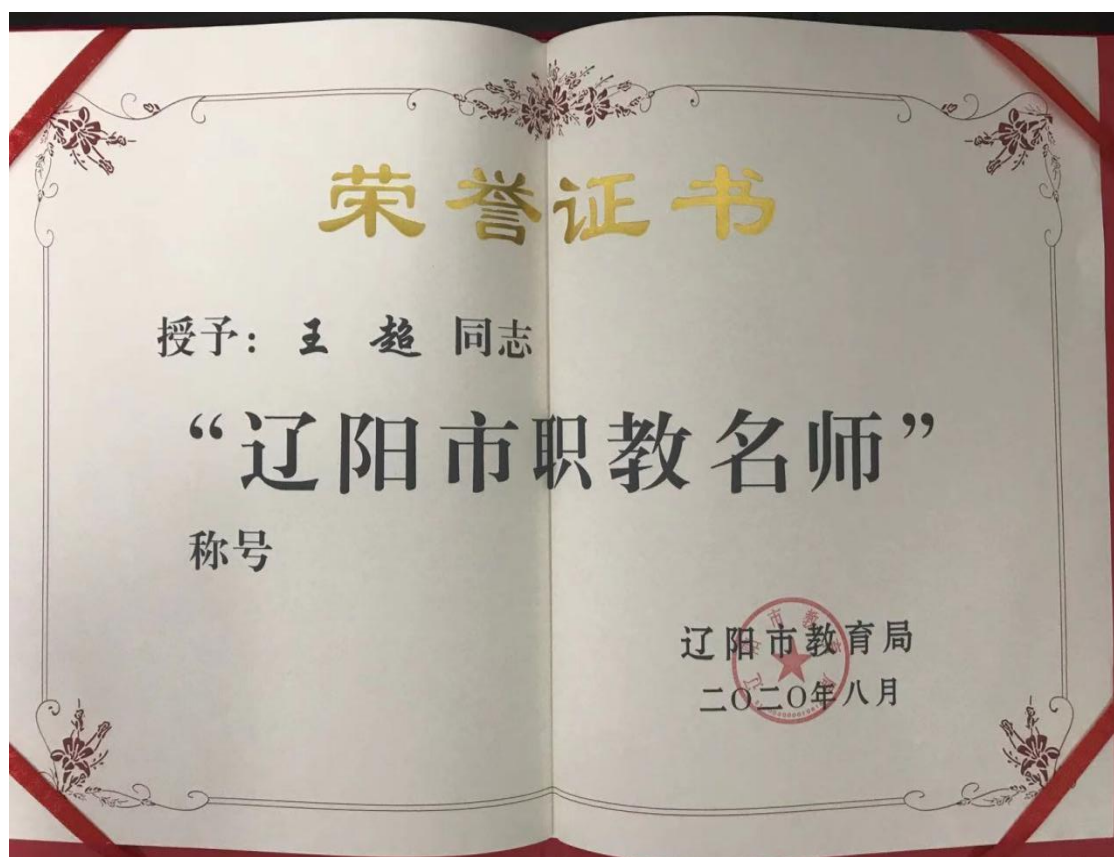 荣誉证书
授予：王超同志
“辽阳市职教名师”
称号
辽阳市教育局
二〇二〇年八月